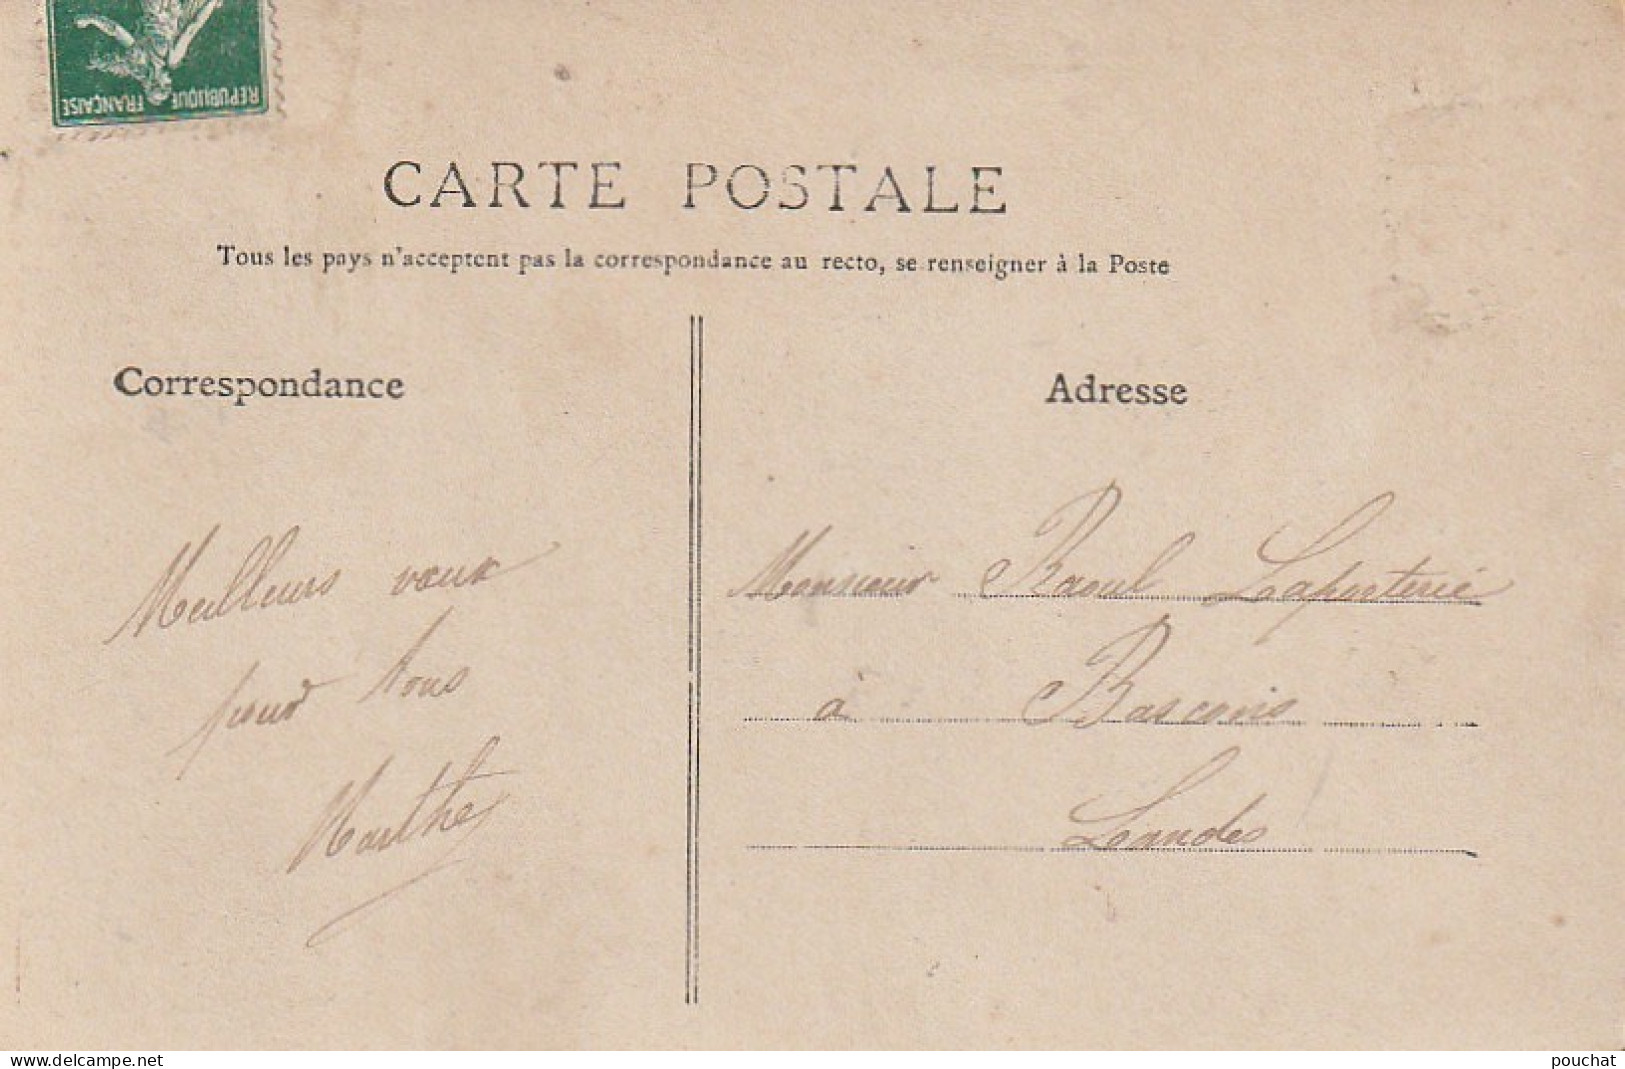 RÉPUBLIQUE FRANÇAISE
CARTE POSTALE
Tous les pays n'acceptent pas la correspondance au recto, se renseigner à la Poste
Correspondance
Adresse
Meilleurs vœux
pour tous
Marthe
Monsieur Raoul Laporterie
à Bascons
Landes
delcampe.net
pouchat